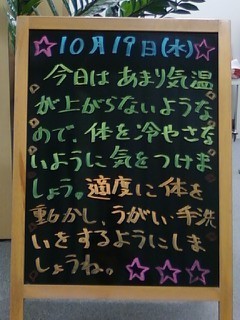 10月19日(水)
今日はあまり気温
が上がらないような
ので、体を冷やさな
いように気をつけま
しょう。適度に体を
動かし、うがい・手洗
いをするようにしま
しょうね。